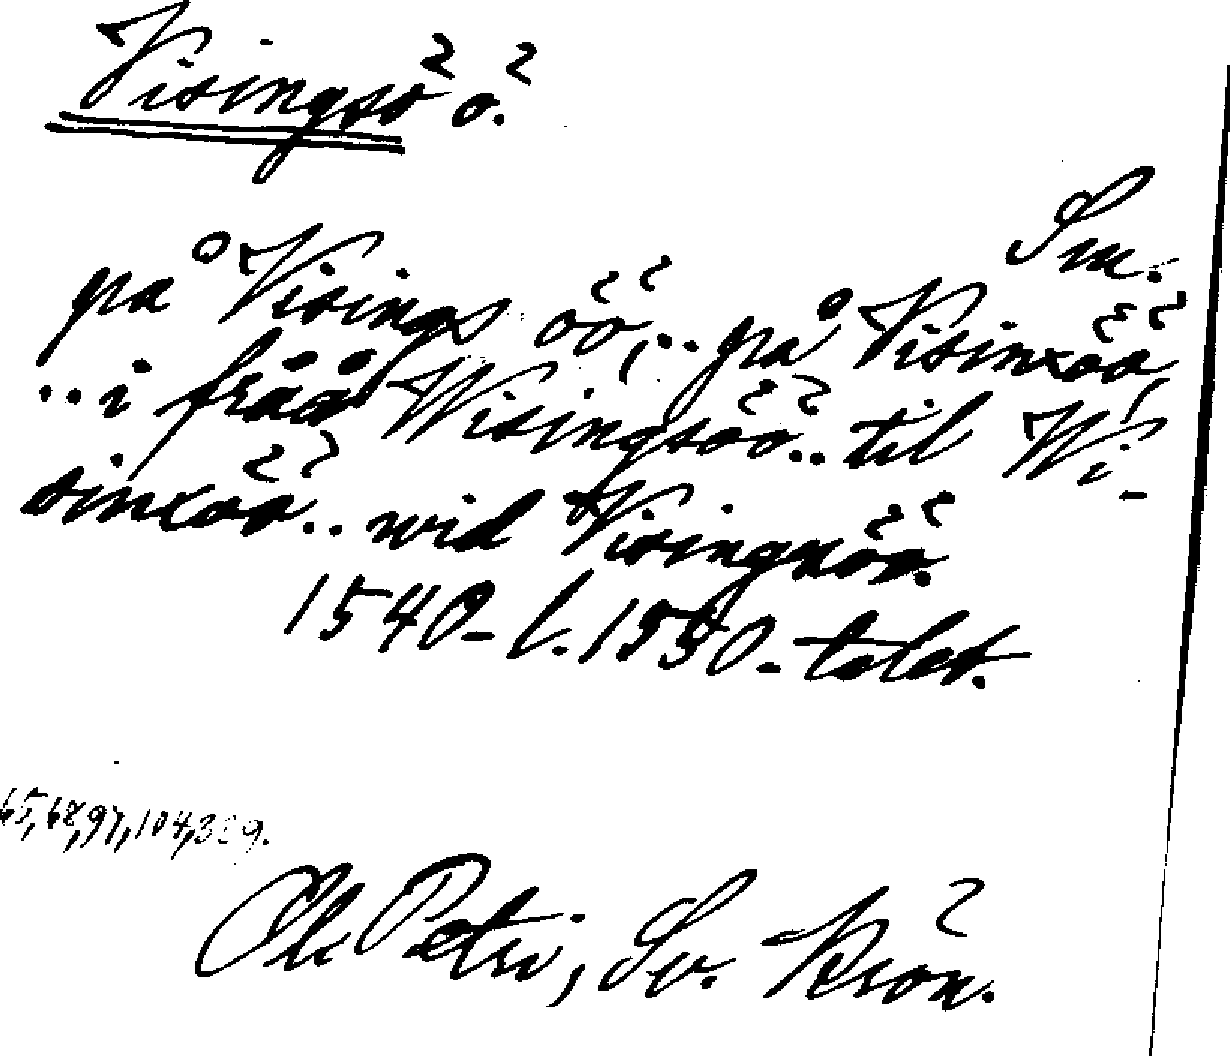 Visingsö ö.
Sm.
på Visings öö,.. på Visinxöö,
..i fråå Wisingsöö.. til Wi-
sinxöö.. wid Visingxöö.
1540- l. 1550-talet.
65,68,97,104,329.
Ol. Petri, Sv. Krön.